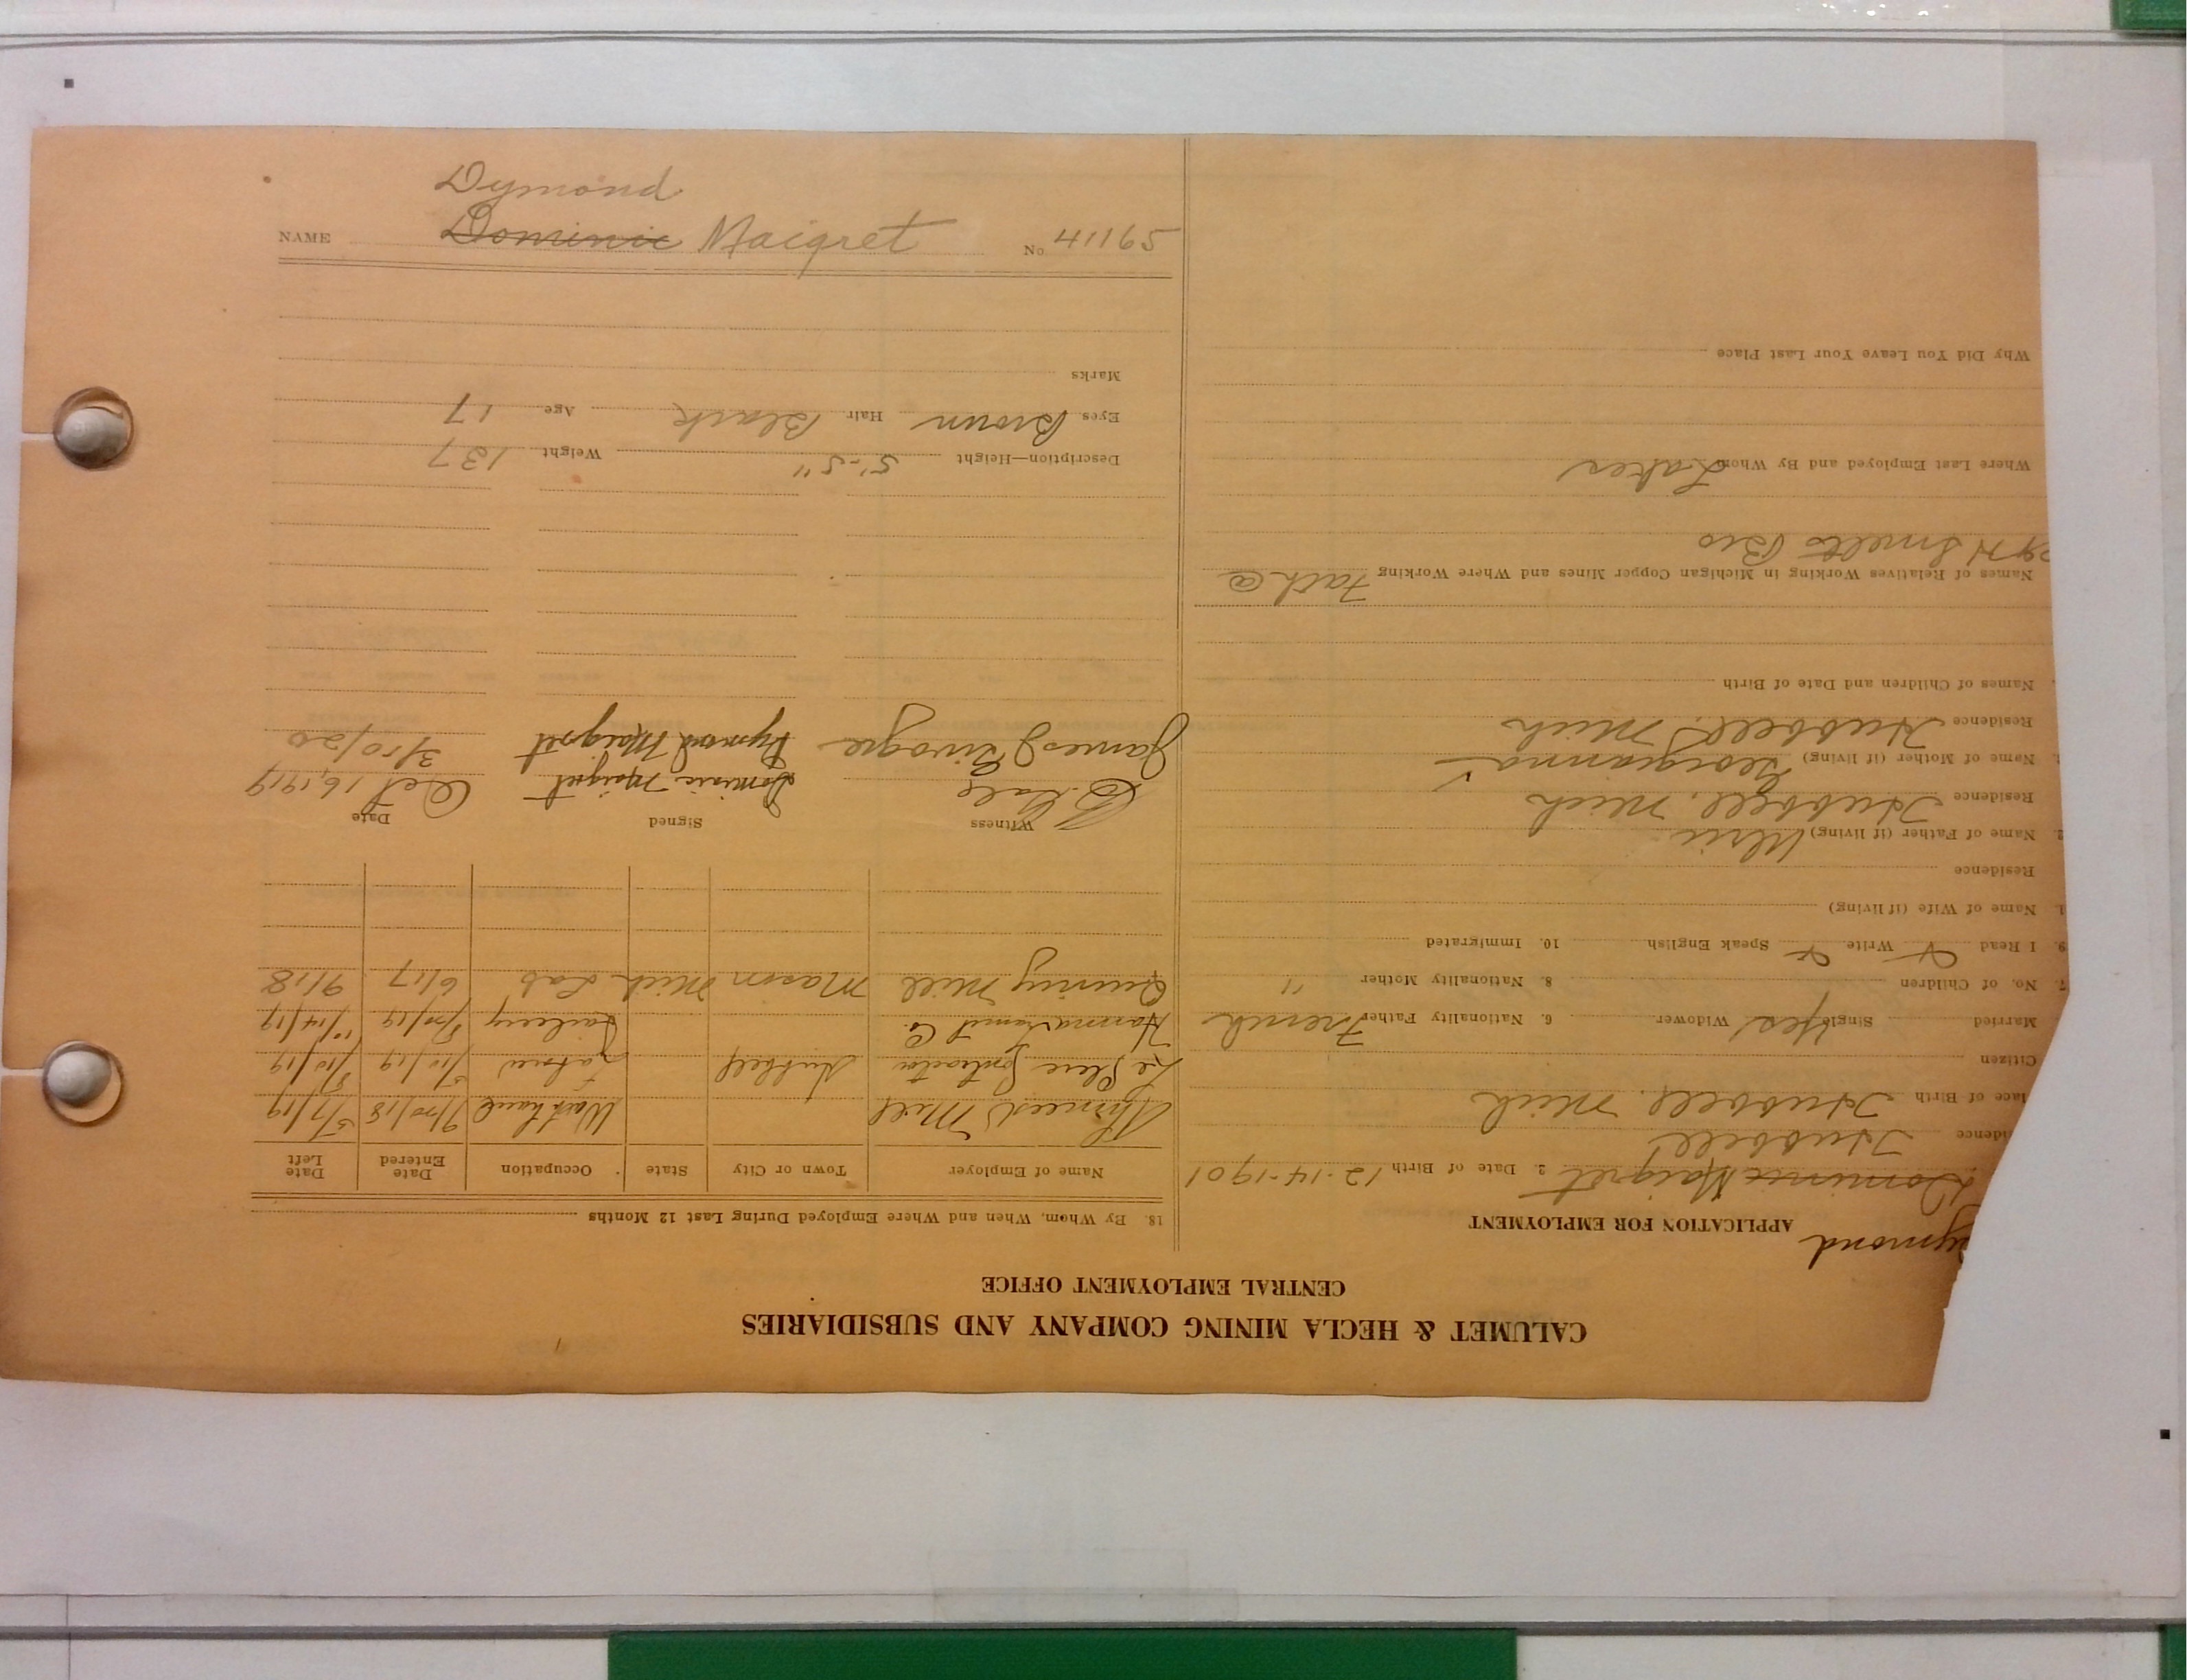 Dymond
NAME Dominic Maigret No 41165
CALUMET & HECLA MINING COMPANY AND SUBSIDIARIES
CENTRAL EMPLOYMENT OFFICE
APPLICATION FOR EMPLOYMENT
Dominic Maigret 2. Date of Birth 12-14-1901
Hubbell
Place of Birth Hubbell, Mich
Citizen
Married Single Yes Widower 6. Nationality Father French
7. No. of Children 8. Nationality Mother "
9. I Read Write Speak English 10. Immigrated
1. Name of Wife (if living)
Residence
2. Name of Father (if living) Ulric
Residence Hubbell, Mich
Name of Mother (if living) Georgianna
Residence Hubbell, Mich
Names of Children and Date of Birth
Names of Relatives Working in Michigan Copper Mines and Where Working Fath @
C & H Smelts Bro
Where Last Employed and By Whom Lakes
Why Did You Leave Your Last Place
18. By Whom, When and Where Employed During Last 12 Months
Name of Employer Town or City State Occupation Date Entered Date Left
Ahmeek Mill 9/20/18 5/7/19
Contractor Hubbell Laborer 5/10/19 8/10/19
Co. 10/14/19
Quincy Mill Mason Mich Lab 6/17 9/18
Witness Signed Date
Dominic Maigret Oct 16, 1919
James Dymond Maigret 3/10/20
Description—Height 5'-5" Weight 137
Eyes Brown Hair Black Age 17
Marks